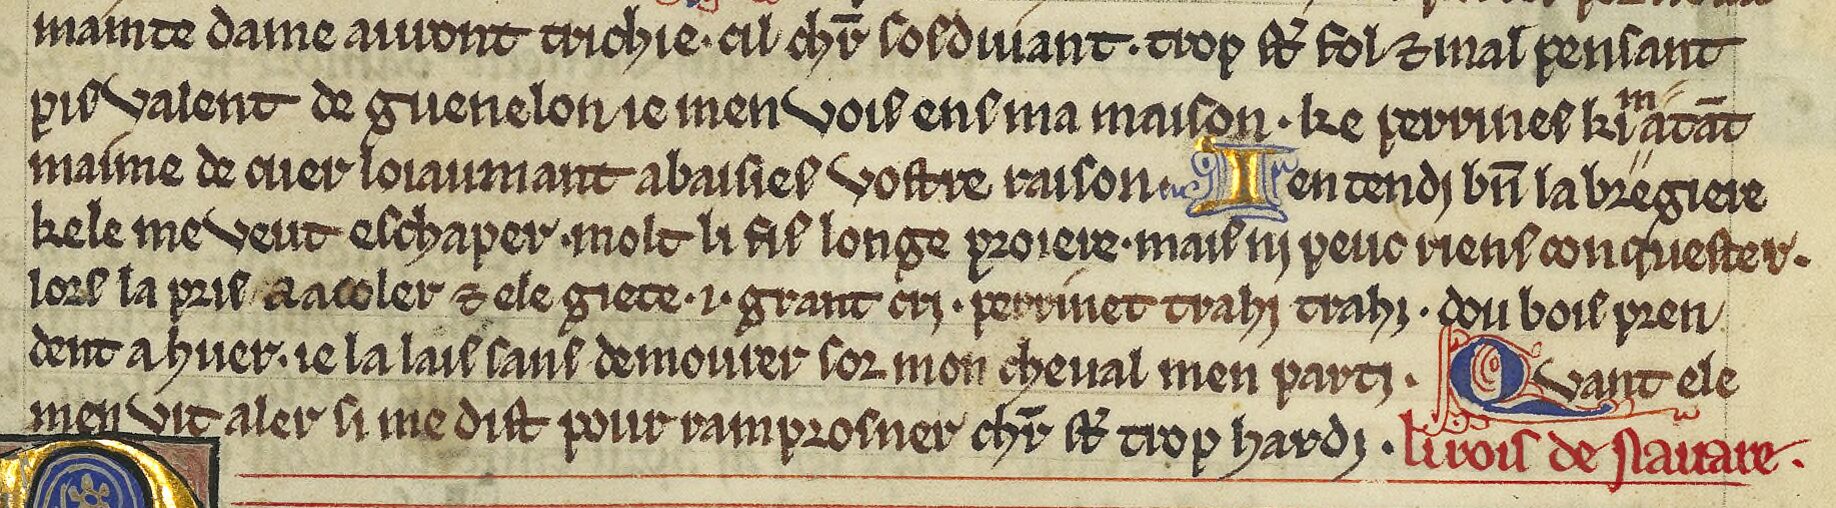 mainte dame auront trichie· cil chr̄ soſduiant· trop ſt̄ fol ⁊ mal penſant
piſ valent de guenelon ie men voiſ enſ ma maiſon· ke perrineſ ki matāt
maime de cuer loiaumant abaiſieſ voſtre raiſon· Ien tendi bn̄ la bregiere
kele me veut eſchaper· molt li fiſ longe proiere· maiſ ni peuc rienſ conqueſter·
lorſ la priſ a acoler ⁊ ele giete ·i· grant cri· perrinet trahi trahi· dou boiſ pren
dent a huer· ie la laiſ ſanſ demourer ſor mon cheual men parti· Quant ele
men vit aler ſi me diſt pour ramproſner chr̄ ſt̄ trop hardi· li roiſ de nauare·